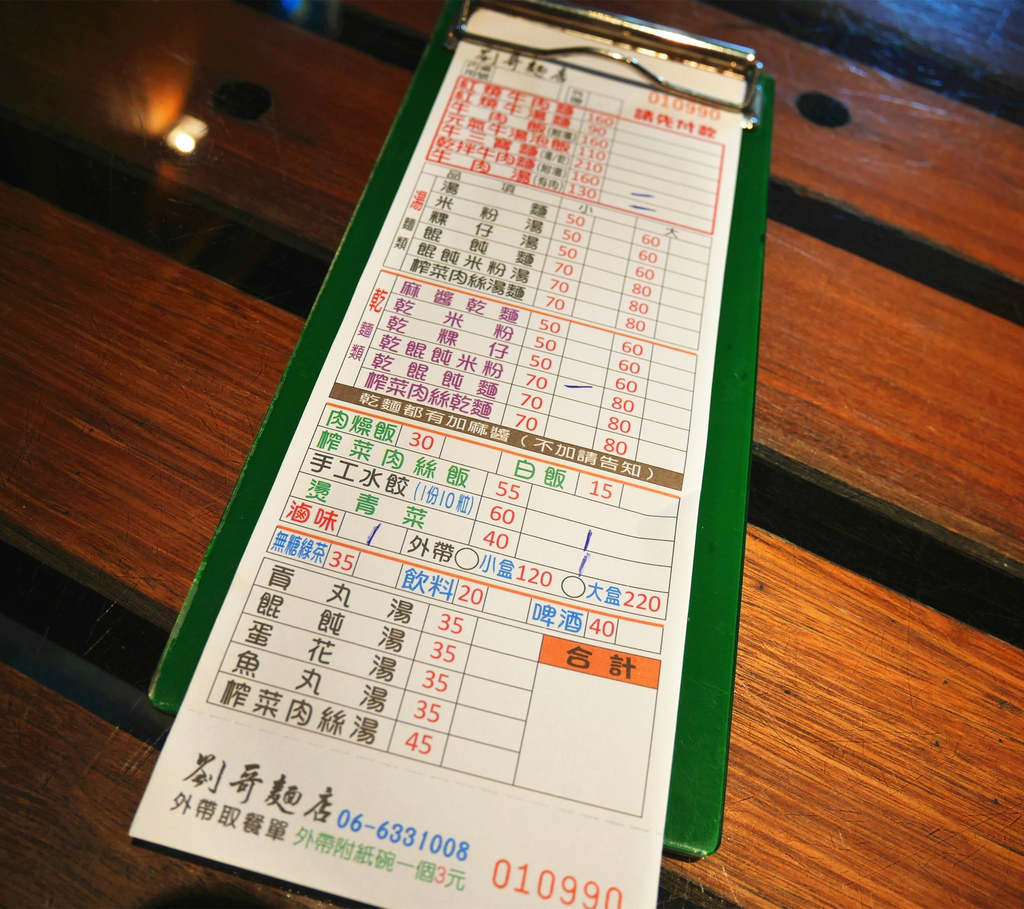 劉哥麵店
010990
請先付款
紅燒牛肉麵 160
紅燒牛湯麵 90
牛肉飯(附湯) 160
元氣牛湯泡飯 110
牛三寶麵(湯/乾) 210
乾拌牛肉麵(附湯) 160
牛肉湯(有肉) 130 二
品項 小 大
湯麵類
湯麵 50 60
米粉湯 50 60
粿仔湯 50 60
餛飩麵 70 80
餛飩米粉湯 70 80
榨菜肉絲湯麵 70 80
乾麵類
麻醬乾麵 50 60
乾米粉 50 60
乾粿仔 50 60
乾餛飩米粉 70 一 80
乾餛飩麵 70 80
榨菜肉絲乾麵 70 80
乾麵都有加麻醬(不加請告知)
肉燥飯 30 白飯 15
榨菜肉絲飯 55
手工水餃(1份10粒) 60
燙青菜 40
滷味 外帶 小盒120 大盒220
無糖綠茶 35 飲料 20 啤酒 40
貢丸湯 35 合計
餛飩湯 35
蛋花湯 35
魚丸湯 35
榨菜肉絲湯 45
劉哥麵店 06-6331008
外帶取餐單 外帶附紙碗一個3元
010990